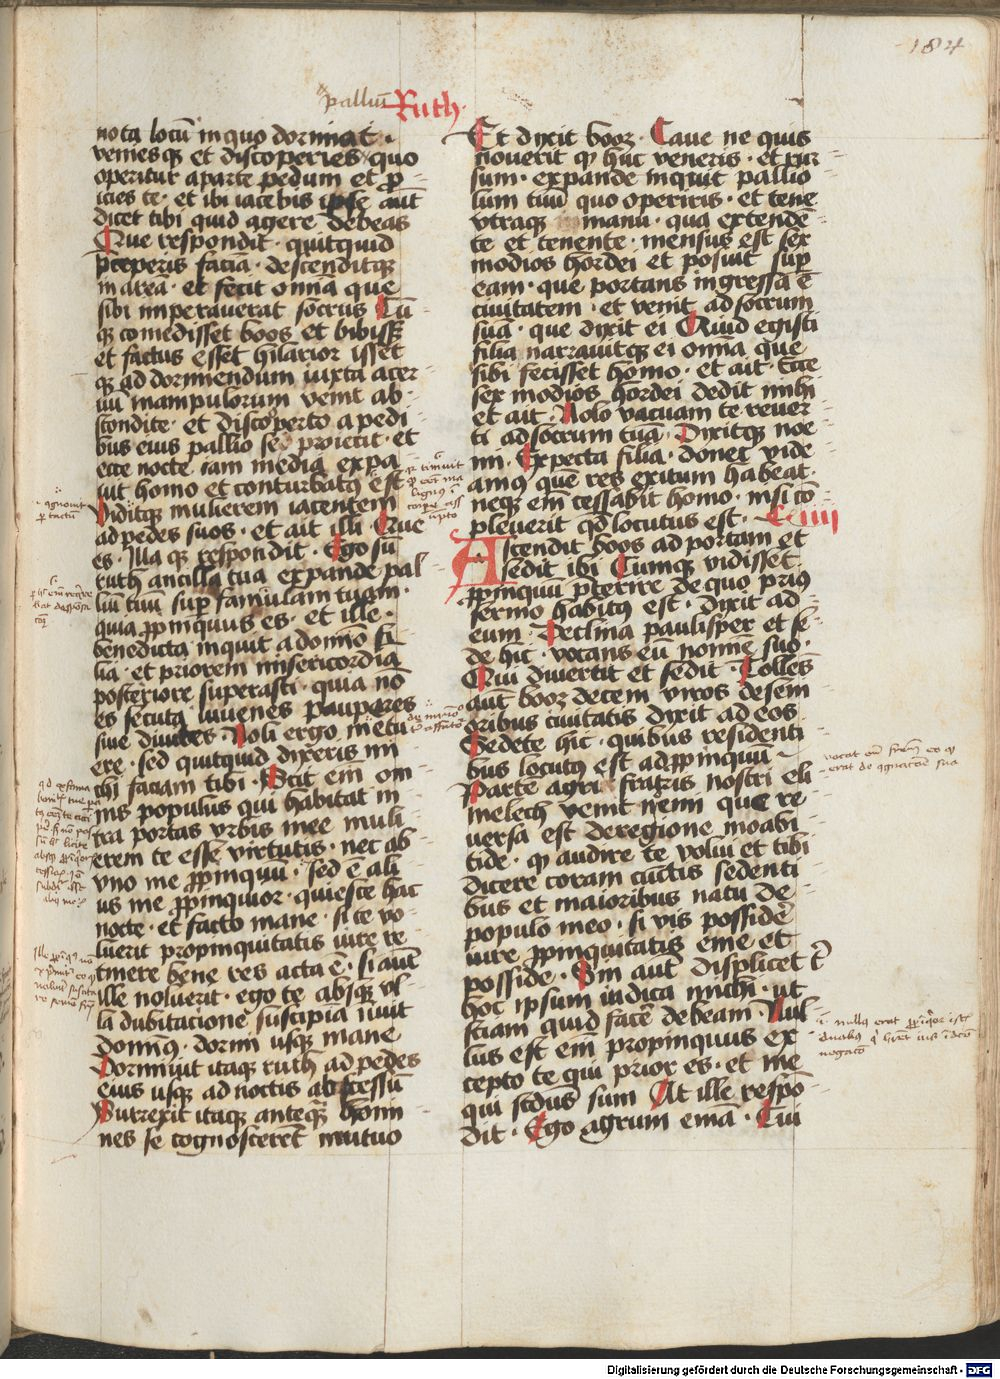 184
palliũ Ruth
nota locũ in quo dormiat ·
veniesqꝫ et discoperies quo
operitur a parte pedum et ꝓ
icies te · et ibi iacebis ipse aut̃
dicet tibi quid agere debeas
Que respondit · quitquid
preceperis faciã · descenditqꝫ
in areã · et fecit om̃ia que
sibi imperauerat socrus Cũ
qꝫ comedisset boos et bibissꝫ
et factus esset hilarior isset
qꝫ ad dormiendum iuxta acer
uũ manipulorum venit ab
scondite · et discoperto a pedi
bus eius pallio se proiecit · et
ecce nocte iam media expa
uit homo et conturbatꝰ est
Viditqꝫ mulierem iacentem
ad pedes suos · et ait illi Que
es · Illa qꝫ respondit · Ego sũ
ruth ancilla tua expande pal
liũ tuũ suꝑ famulam tuam ·
quia ꝓpinquus es · et ille ·
benedicta inquit a domĩo fi
lia · et priorem misericordiã
posteriore superasti · quia nõ
es secuta iuuenes pauperes
siue diuites Noli ergo metu
ere · sed quitquid dixeris mi
chi faciam tibi · Scit em̃ om
nis populus qui habitat in
tra portas vrbis mee muli
erem te esse virtutis · nec ab
vno me ꝓpinquũ · sed ẽ ali
us me ꝓpinquior · quiesce hac
nocte · et facto mane · si te vo
luerit propinquitatis iure re
tinere bene res acta ẽ · si aut̃
ille noluerit · ego te absqꝫ vl
la dubitacione suscipiã viuit
domĩꝰ · dormi usqꝫ mane
Dormiuit itaqꝫ ruth ad pedes
eius usqꝫ ad noctis abscessũ
Surrexit itaqꝫ anteqꝫ̃ homi
nes se cognoscerẽt mutuo
Et dixit booz · Caue ne quis
nouerit ꝙ huc veneris · et rur
sum · expande inquit pallio
lum tuũ quo operiris · et tene
vtraqꝫ manu · qua extendẽ
te et tenente · mensus est sex
modios hordei et posuit suꝑ
eam · que portans ingressa ẽ
ciuitatem · et venit ad socrum
suã · que dixit ei Quid egisti
filia narrauitqꝫ ei om̃ia que
sibi fecisset homo · et ait · Ecce
sex modios hordei dedit mihi
et ait · Nolo vacuam te reuer
ti ad socrum tuã · Dixitqꝫ noe
mi · Expecta filia · donec vide
amꝰ quẽ res exitum habeat ·
neqꝫ em̃ cessabit homo · nisi cõ
pleuerit qd̃ locutus est · C iiii
Ascendit boos ad portam et
sedit ibi Cumqꝫ vidisset
ꝓpinquũ p̃terire de quo priꝰ
sermo habitꝰ est · dixit ad
eum · Declina paulisper et se
de hic · vocans eũ nomĩe suo ·
Qui diuertit et sedit · Tollẽs
aut̃ booz decem viros de sem
oribus ciuitatis dixit ad eos
Sedete hic · quibus residenti
bus locutꝰ est ad ꝓpinquũ
Partẽ agri fratris nostri eli
melech venit noemi que re
uersa est de regione moabi
tide · ꝙ audire te volui et tibi
dicere coram cũctis sedenti
bus et maioribus natu de
populo meo · si vis possidẽ
iure ꝓpinquitatis eme et
posside · Sin aut̃ displicet t̃
hoc ipsum indica michi · ut
sciam quid facẽ debeam · Nul
lus est em̃ propinquus ex
cepto te qui prior es · et me
qui scd̃us sum At ille respõ
dit · Ego agrum emã · Cui
Digitalisierung gefördert durch die Deutsche Forschungsgemeinschaft - DFG